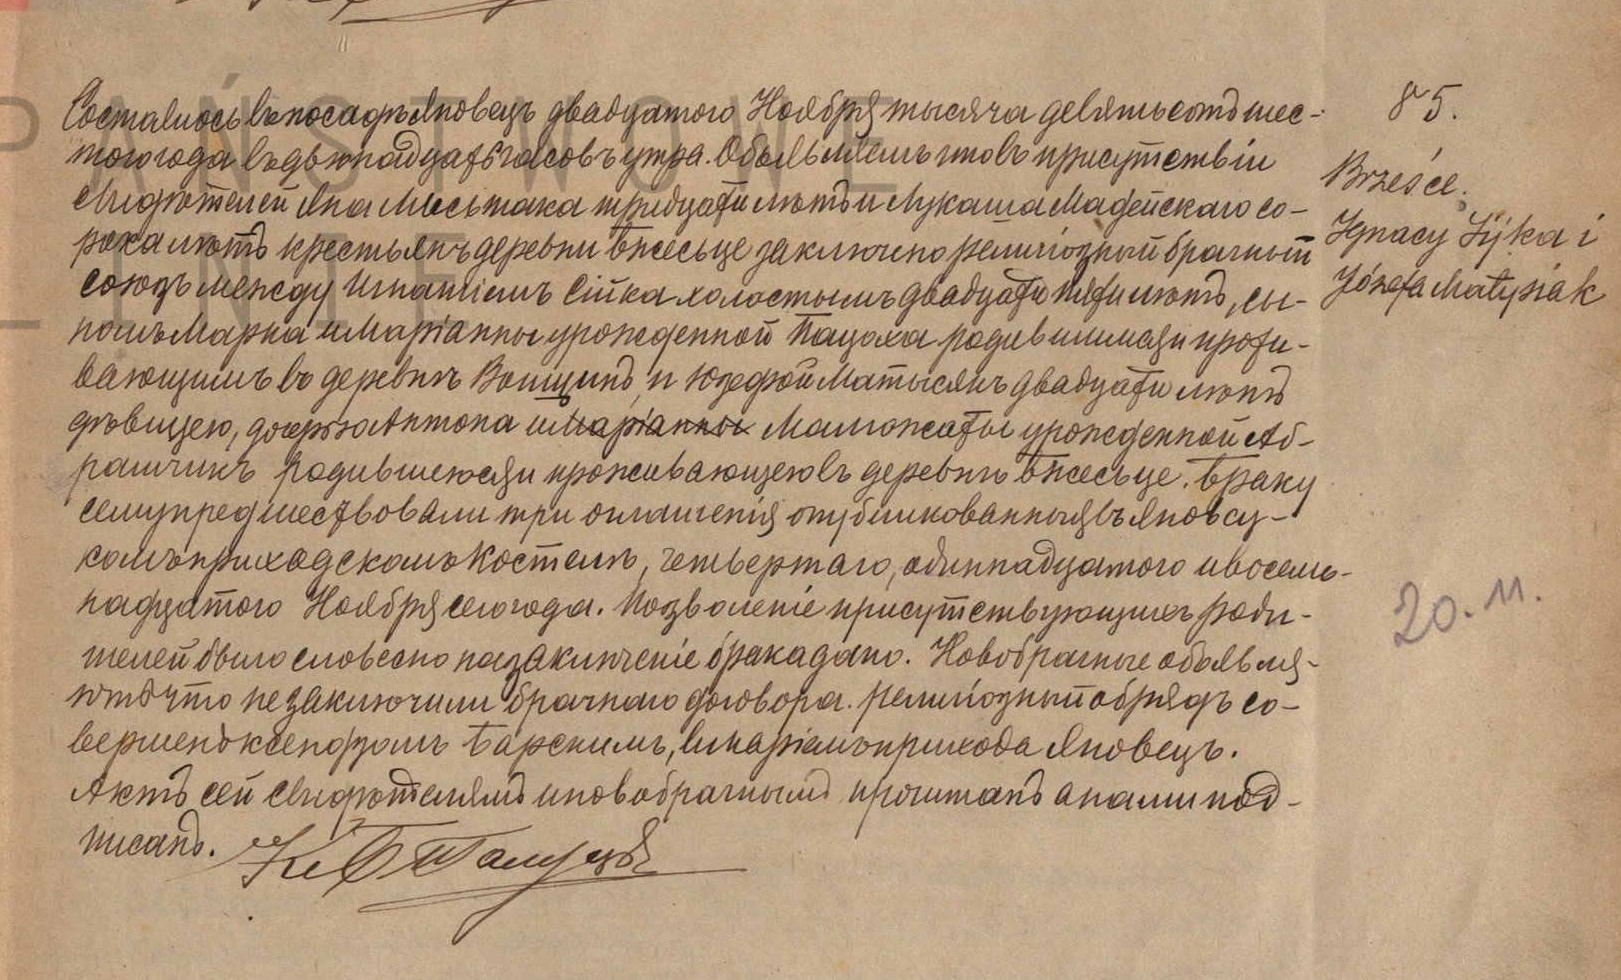 85.
Brześce.
Ignacy Sijka i
Józefa Matysiak
Состоялось въ посадѣ Яновецъ двадцатого Ноября тысяча девятьсотъ шес-
того года въ двѣнадцать часовъ утра. Объявляемъ что въ присутствіи
свидѣтелей Яна Мисьтака тридцати лѣтъ и Лукаша Мадейскаго со-
рока лѣтъ крестьянъ деревни Бжесьце заключено религіозный брачный
союзъ между Игнатіемъ Сійка холостымъ двадцати пяти лѣтъ, сы-
номъ Марка и Маріанны урожденной Пацоха родившимся и прожи-
вающимъ въ деревнѣ и Юзефой Матысякъ двадцати лѣтъ
дѣвицею, дочерью Антона и Маріанны Малгожаты урожденной Аб-
рамчикъ родившеюся и проживающею въ деревнѣ Бжесьце. Браку
сему предшествовали три оглашенія опубликованныя въ Яновс-
комъ приходскомъ Костелѣ, четвертаго, одиннадцатого и восем-
надцатого Ноября сего года. Позволеніе присутствующихъ роди-
телей было словесно на заключеніе брака дано. Новобрачные объявля-
ютъ что не заключили брачнаго договора. Религіозный обрядъ со-
вершенъ ксендзомъ Барскимъ, викаріемъ прихода Яновецъ.
Актъ сей свидѣтелямъ и новобрачнымъ прочитанъ а нами под-
писанъ.
20. 11.
PAŃSTWOWE